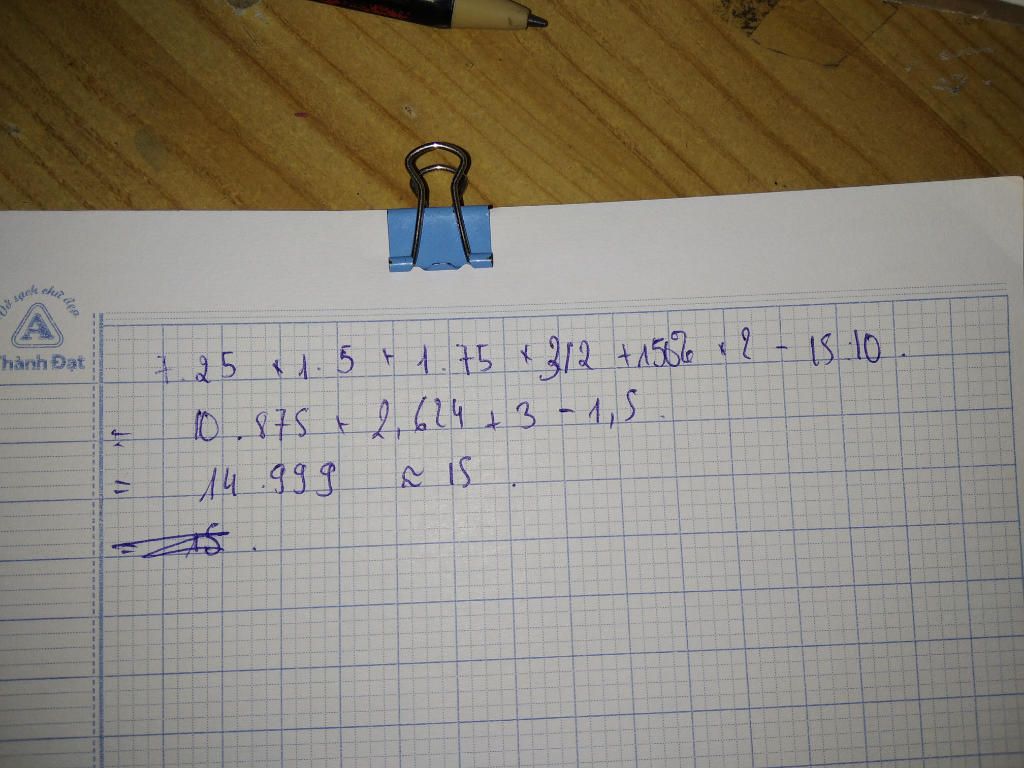 Vở sạch chữ đẹp
A
Thành Đạt
7.25 × 1.5 + 1.75 × 3/2 + 150% × 2 - 15:10.
= 10.875 + 2,624 + 3 - 1,5.
= 14.999 ≈ 15.
= 15.